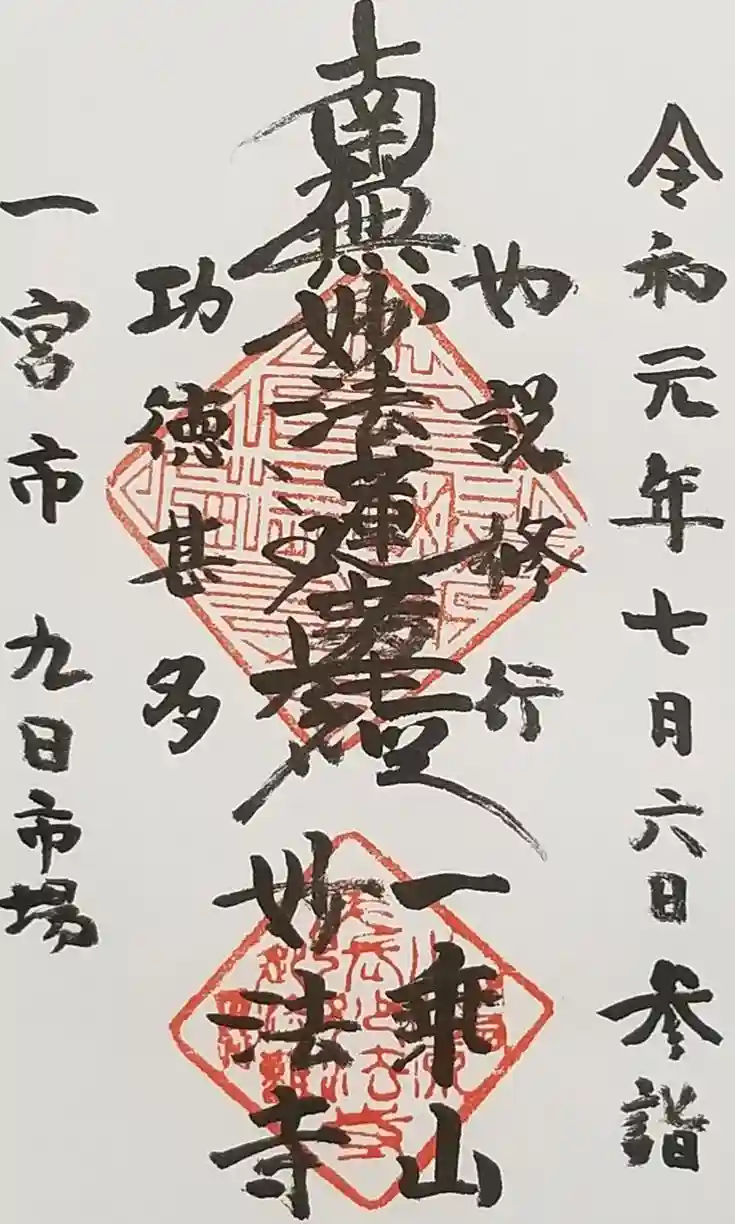 令和元年七月六日参詣
如説修行
南無妙法蓮華経
功徳甚多
一宮市 九日市場
一乗山
妙法寺